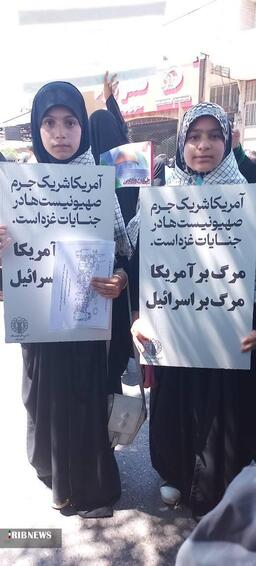 آمریکا شریک جرم
صهیونیست ها در
جنایات غزه است.
آمریکا
اسرائیل
آمریکا شریک جرم
صهیونیست ها در
جنایات غزه است.
مرگ بر آمریکا
مرگ بر اسرائیل
IRIBNEWS